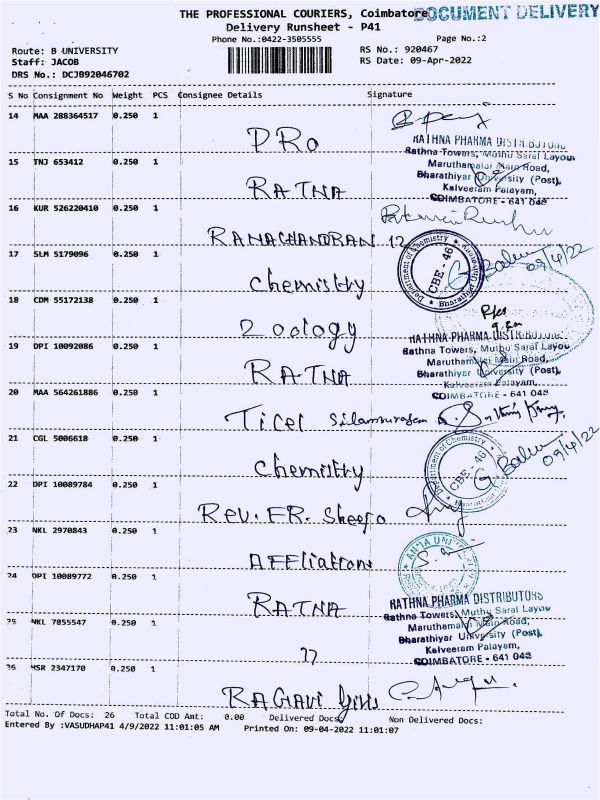 THE PROFESSIONAL COURIERS, Coimbatore DOCUMENT DELIVERY
Delivery Runsheet - P41
Phone No.:0422-3505555 Page No.:2
Route: B UNIVERSITY RS No.: 920467
Staff: JACOB RS Date: 09-Apr-2022
DRS No.: DCJB92046702
S No Consignment No Weight PCS Consignee Details Signature
14 MAA 288364517 0.250 1
PRO
RATHNA PHARMA DISTRIBUTORS
Rathna Towers, Muthu Saral Layou
15 TNJ 653412 0.250 1 Maruthamalai Main Road,
Bharathiyar University (Post),
RATNA Kalveeram Palayam,
COIMBATORE - 641 046
16 KUR 526220410 0.250 1
RAMACHANDRAN 12
Department of Chemistry
CBE - 46
Bharathiar University
17 SLM 5179096 0.250 1 G Babu 09/4/22
Chemistry
18 CDM 55172138 0.250 1
Zoology
RATHNA PHARMA DISTRIBUTORS
19 DPI 10092086 0.250 1 Rathna Towers, Muthu Saral Layou
Maruthamalai Main Road,
RATNA Bharathiyar University (Post),
Kalveeram Palayam,
20 MAA 564261886 0.250 1 COIMBATORE - 641 046
Ticel
21 CGL 5006618 0.250 1 Department of Chemistry
CBE - 46
Chemistry G Babu 09/4/22
22 DPI 10089784 0.250 1
Rev. FR. Sheejo
23 NKL 2970843 0.250 1 ANNA UNI
Affliations
24 DPI 10089772 0.250 1
RATNA
RATHNA PHARMA DISTRIBUTORS
Rathna Towers, Muthu Saral Layou
25 NKL 7855547 0.250 1 Maruthamalai Main Road,
Bharathiyar University (Post),
77 Kalveeram Palayam,
COIMBATORE - 641 046
26 HSR 2347170 0.250 1
RAGAVI Girls
Total No. Of Docs: 26 Total COD Amt: 0.00 Delivered Docs: Non Delivered Docs:
Entered By :VASUDHAP41 4/9/2022 11:01:05 AM Printed On: 09-04-2022 11:01:07